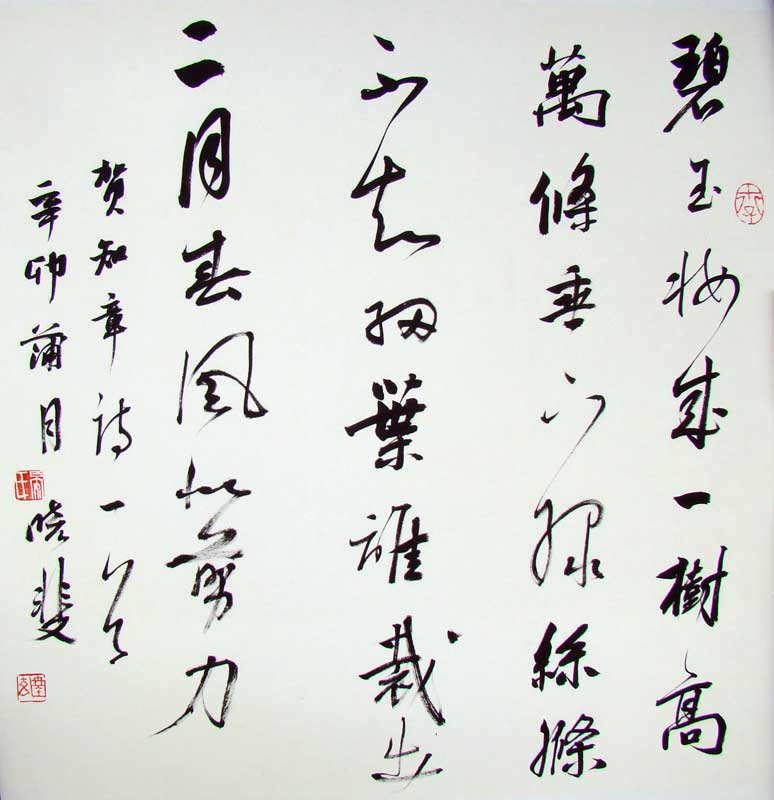 碧玉妆成一樹高
萬條垂下綠絲縧
不知細葉誰裁出
二月春風似剪力
贺知章诗一首
辛卯蒲月 晓斐